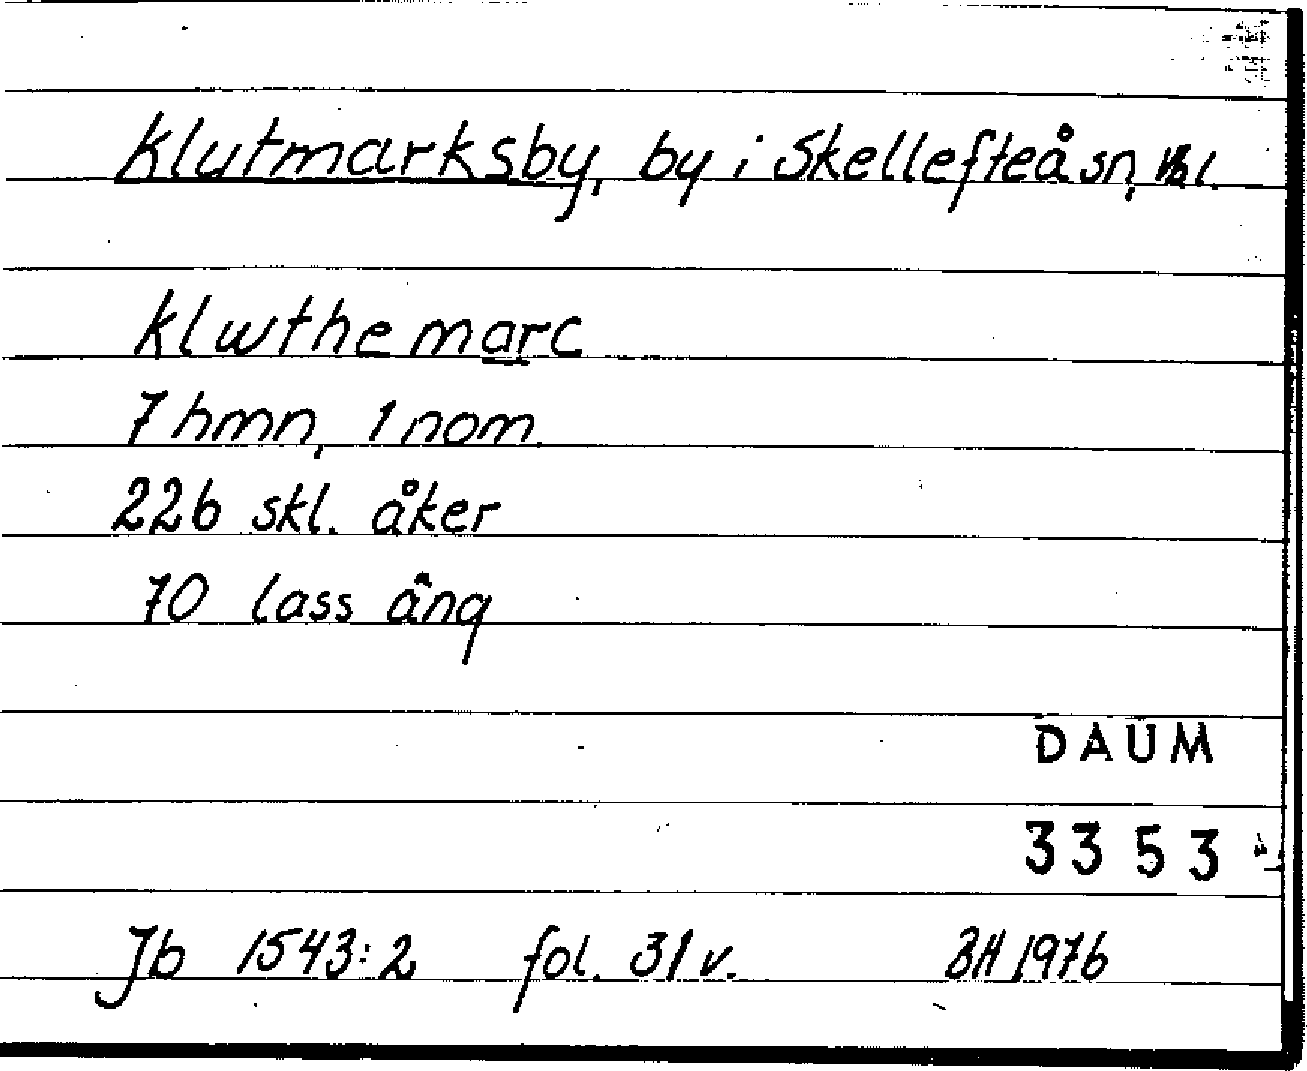 Klutmarksby, by i Skellefteå sn, Vbl.
Klwthe marc
7 hmn, 1 nom.
226 skl. åker
70 lass äng
DAUM
3353
Jb 1543:2 fol. 31 v. BH 1976